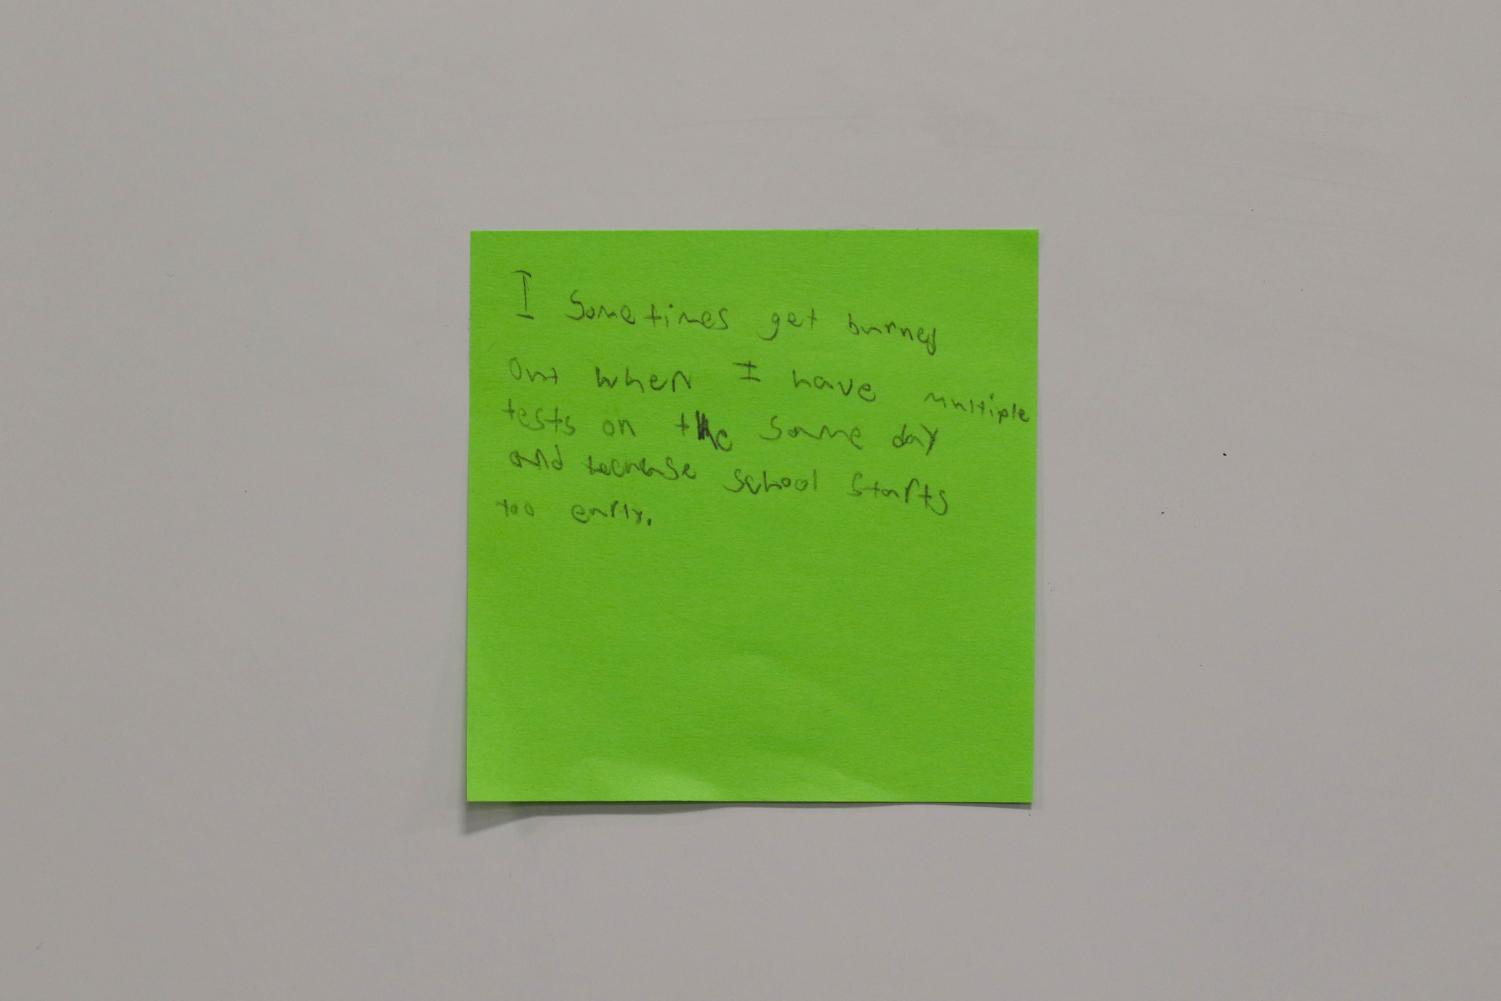 I sometimes get burned
out when I have multiple
tests on the same day
and because school starts
too early.